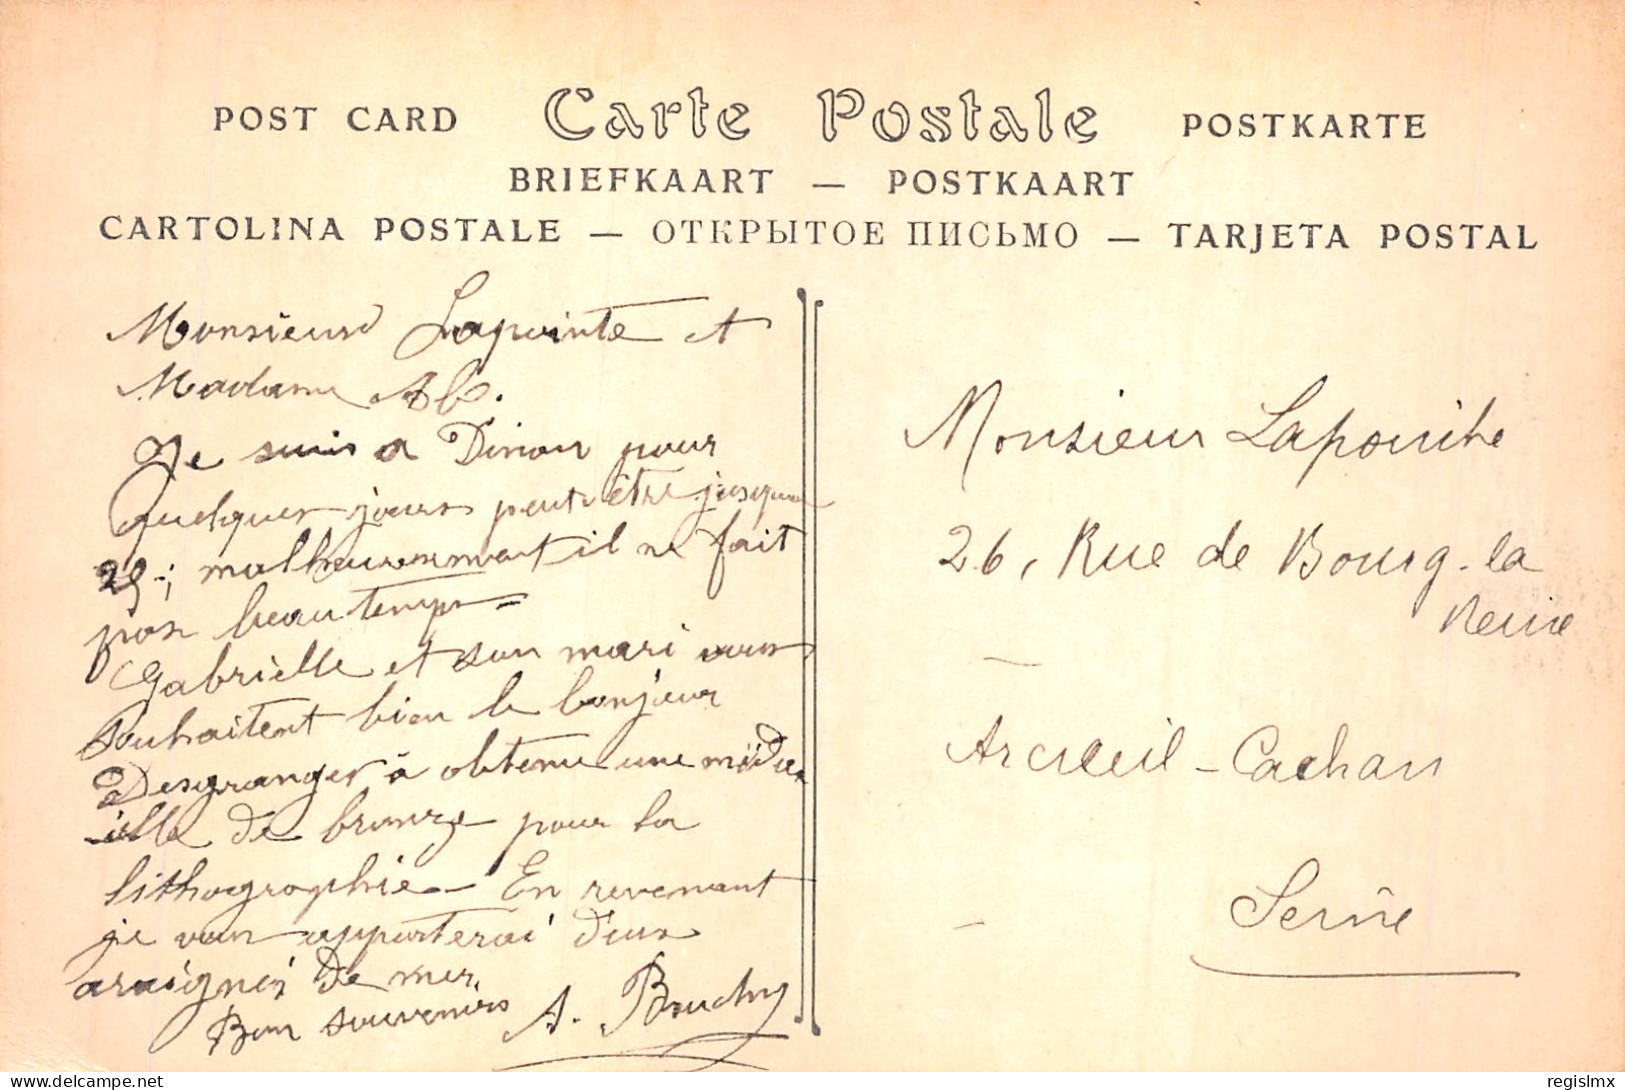 POST CARD Carte Postale POSTKARTE
BRIEFKAART — POSTKAART
CARTOLINA POSTALE — ОТКРЫТОЕ ПИСЬМО — TARJETA POSTAL
Monsieur Lapointe et
Madame
Je suis a Dinan pour
quelques jours peut-être jusqu'au
25; malheureusement il ne fait
pas beau temps =
Gabrielle et son mari vous
souhaitent bien le bonjour
Desgranger à obtenu une méda
ille de bronze pour la
lithographie — En revenant
je vous apporterai deux
araignés de mer
Bon souvenirs A. Bruchy
Monsieur Lapointe
26, Rue de Bourg-la
Reine
Arcueil-Cachan
Seine
regislmx